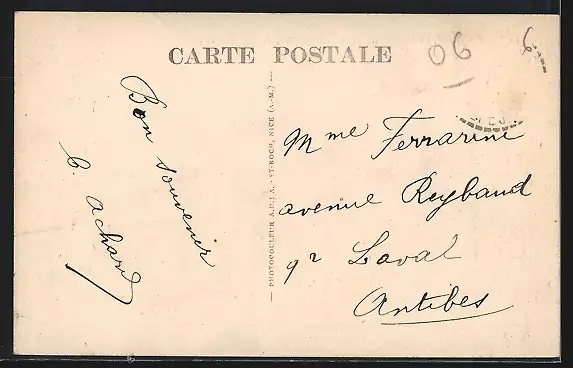 CARTE POSTALE
06
6
Bon souvenir
C. Achard
PHOTOCOULEUR A.D.I.A. - ST-ROCH, NICE (A.-M.)
Mme Ferrarini
avenue Reybaud
qr Laval
Antibes